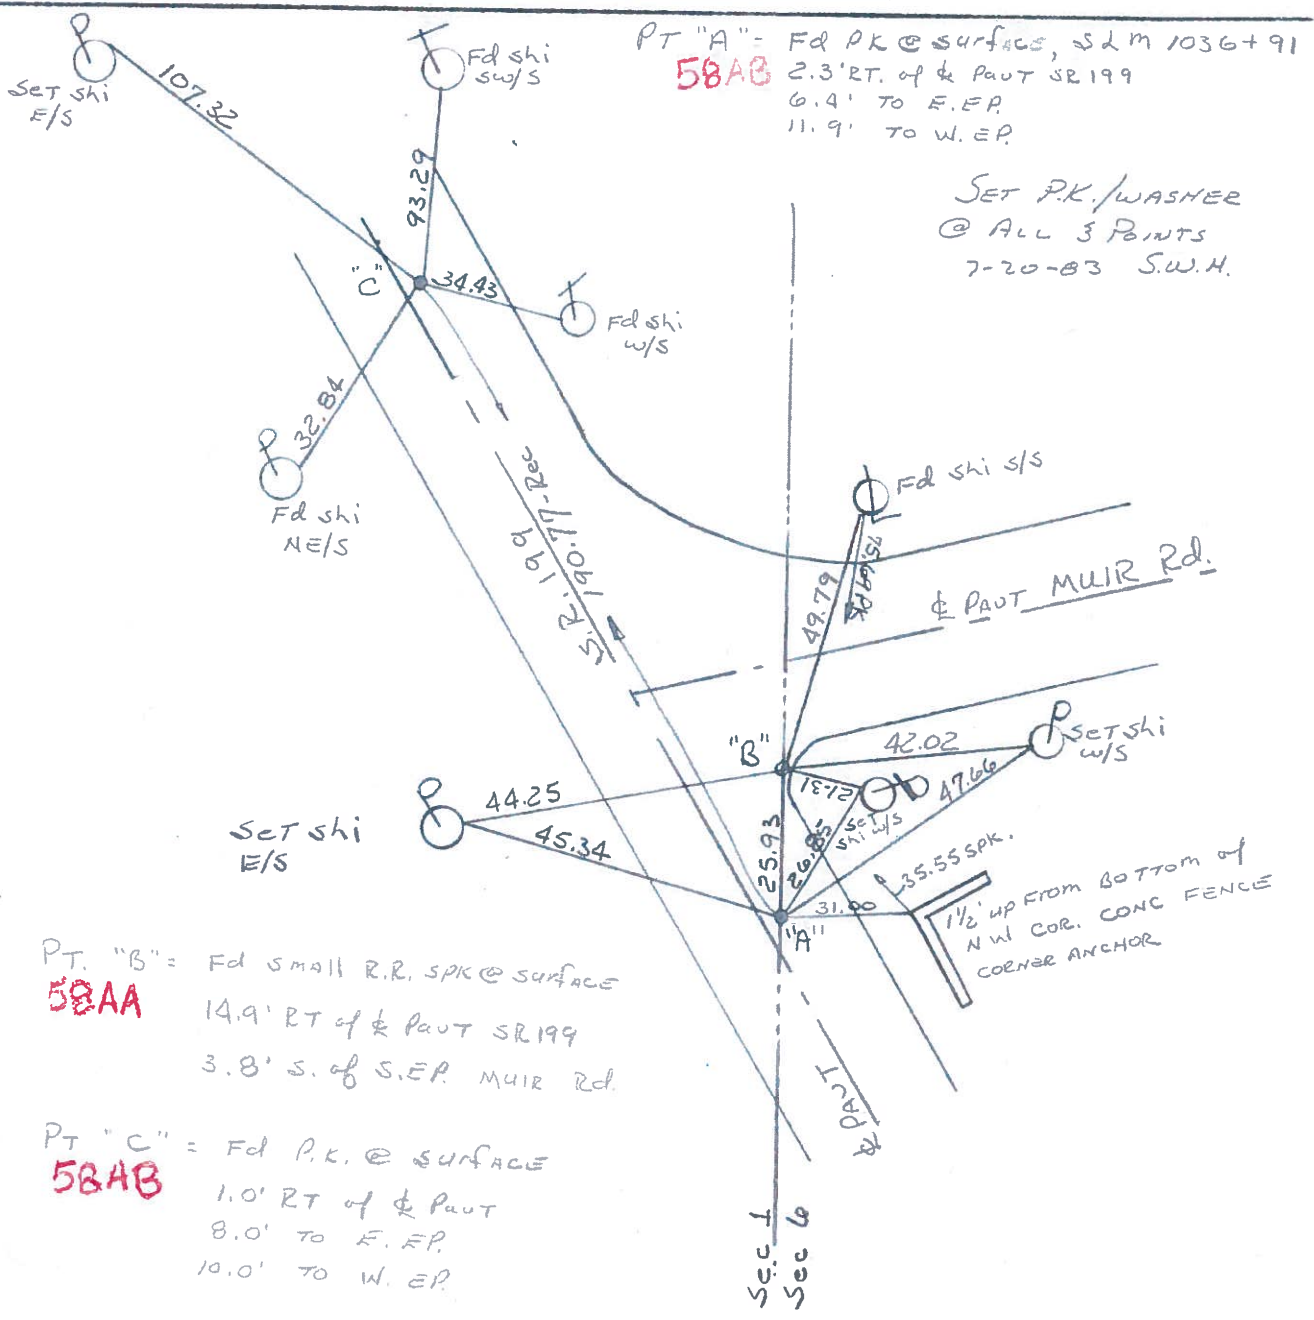 PT "A" = Fd PK @ surface, SLM 1036+91
58AB
2.3' RT. of ℄ PavT SR 199
6.4' TO E. EP.
11.9' TO W. EP.
SET P.K./WASHER
@ ALL 3 POINTS
7-20-83 S.W.H.
P
SeT shi
E/S
107.32
Fd shi
SW/S
93.29
"C"
34.43
Fd shi
W/S
32.84
P
Fd shi
NE/S
S.R. 199
190.77-Rec
Fd shi S/S
75.69 PK
49.79
℄ PAVT MUIR Rd.
"B"
42.02
P
SeT shi
W/S
21.31
47.66
SeT
shi W/S
P
SeT shi
E/S
44.25
45.34
25.93
26.85
35.55 SPK.
31.00
"A"
1½' up From BOTTOM of
NW COR. CONC FENCE
CORNER ANCHOR
PT. "B" = Fd small R.R. SPK @ surFACE
58AA
14.9' RT of ℄ PavT SR 199
3.8' S. of S.EP. MUIR Rd.
PT "C" = Fd P.K. @ surFACE
58AB
1.0' RT of ℄ PavT
8.0' TO E. EP.
10.0' TO W. EP.
℄ PAVT
Sec 1
Sec 6